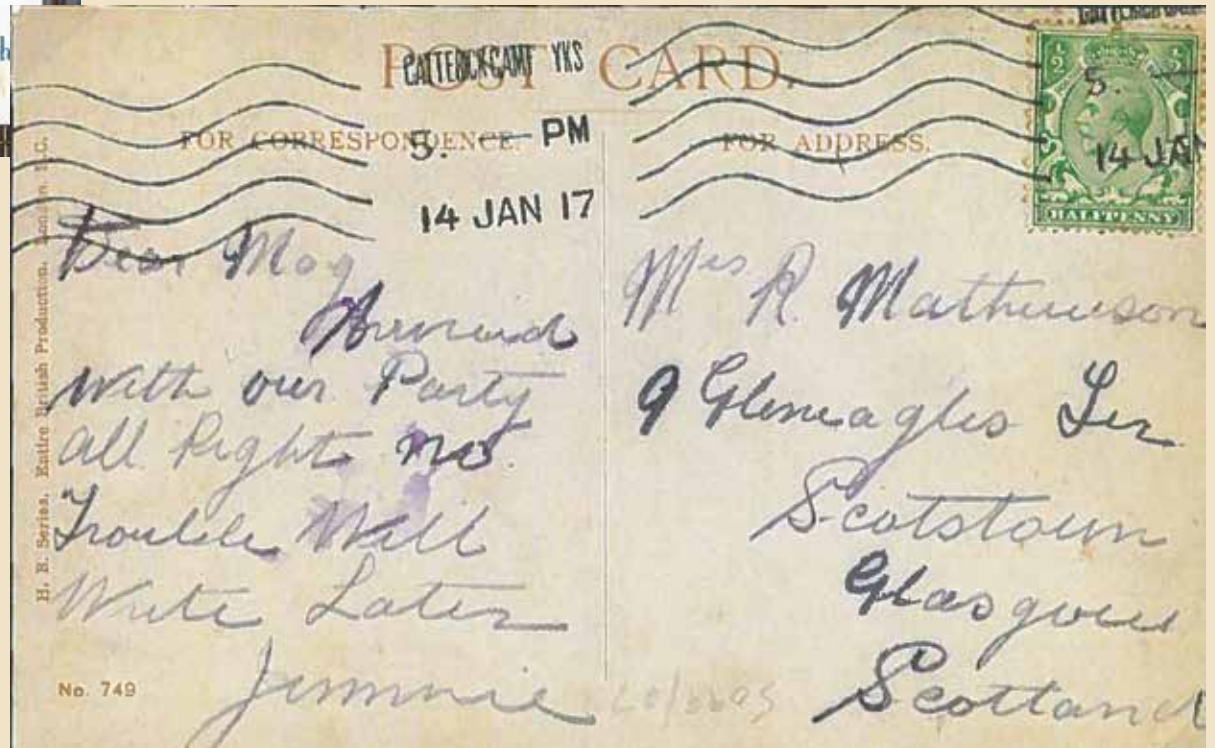 POST CARD.
CATTERICK CAMP YKS
5. PM
14 JAN 17
FOR CORRESPONDENCE.
FOR ADDRESS.
5.
14 JAN
HALFPENNY
H. B. Series. Entire British Production. London. E.C.
Dear Mag
Arrived
With our Party
all Right no
Trouble Will
Write Later
Jimmie
No. 749
Mrs R. Mathewson
9 Gleneagles Ter
Scotstoun
Glasgow
Scotland